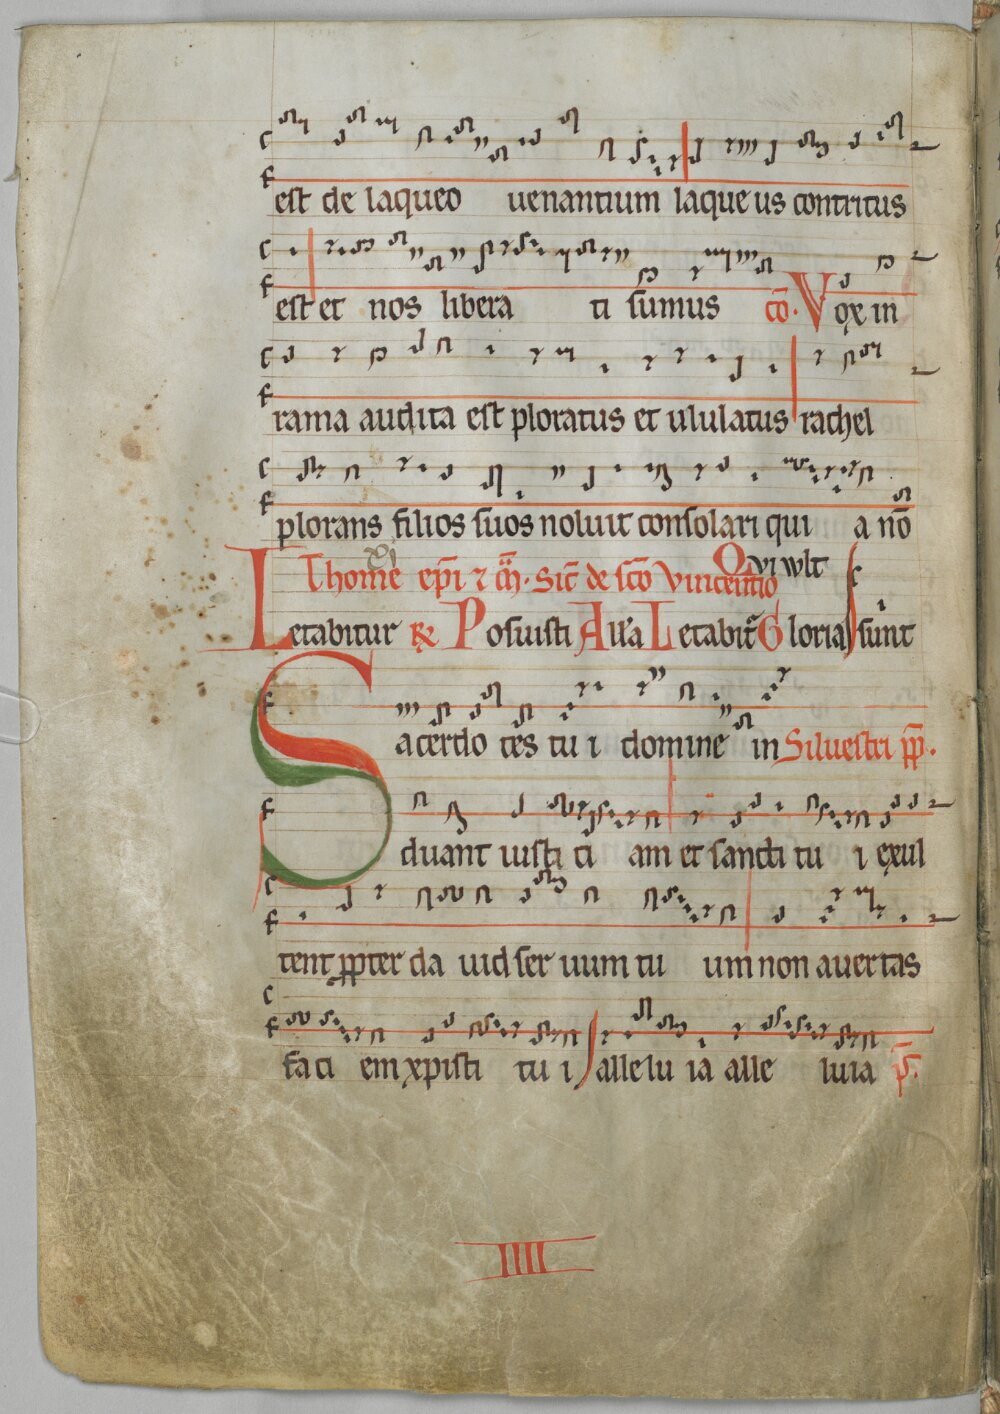 est de laqueo uenantium laque us contritus
est et nos libera ti sumus co̅. Vox in
rama audita est ploratus et ululatus rachel
plorans filios suos noluit consolari qui a no̅
Thome ep̅i ⁊ m̅. Sic̅ de sc̅o vincentio Qvi wlt
Letabitur ℟ Posuisti All'a Letabit᷑ Gloria sunt
Sacerdo tes tu i domine in Siluestri pp̅.
duant iusti ci am et sancti tu i exul
tent ꝓpter da uid ser uum tu um non auertas
fa ci em xpisti tu i alle lu ia alle luia p̅s.
IIII